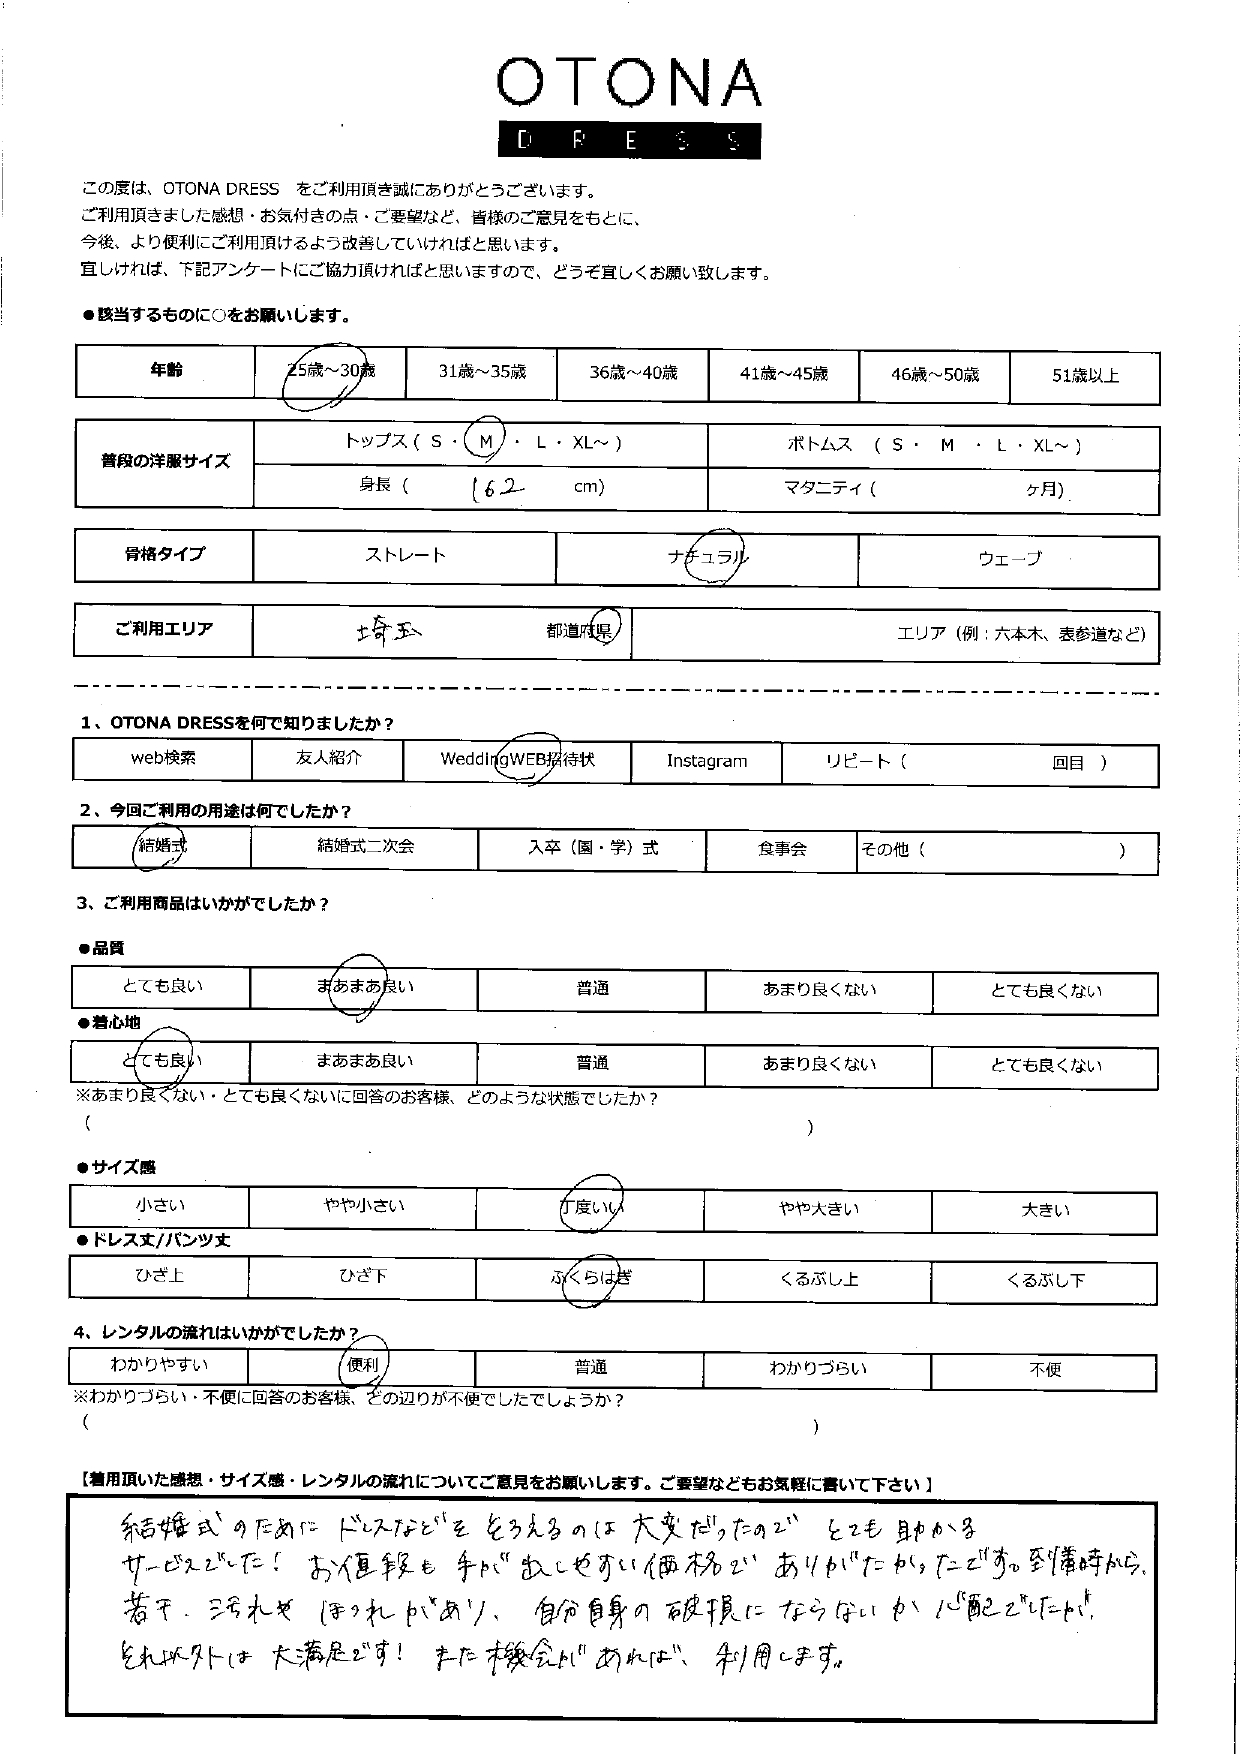 OTONA
DRESS
この度は、OTONA DRESS をご利用頂き誠にありがとうございます。
ご利用頂きました感想・お気付きの点・ご要望など、皆様のご意見をもとに、
今後、より便利にご利用頂けるよう改善していければと思います。
宜しければ、下記アンケートにご協力頂ければと思いますので、どうぞ宜しくお願い致します。
●該当するものに○をお願いします。
年齢 25歳～30歳 31歳～35歳 36歳～40歳 41歳～45歳 46歳～50歳 51歳以上
普段の洋服サイズ トップス ( S ・ M ・ L ・ XL～ ) ボトムス ( S ・ M ・ L ・ XL～ )
身長 ( 162 cm) マタニティ ( ヶ月)
骨格タイプ ストレート ナチュラル ウェーブ
ご利用エリア 埼玉 都道府県 エリア（例：六本木、表参道など）
1、OTONA DRESSを何で知りましたか？
web検索 友人紹介 WeddingWEB招待状 Instagram リピート（ 回目 ）
2、今回ご利用の用途は何でしたか？
結婚式 結婚式二次会 入卒（園・学）式 食事会 その他（ ）
3、ご利用商品はいかがでしたか？
●品質
とても良い まあまあ良い 普通 あまり良くない とても良くない
●着心地
とても良い まあまあ良い 普通 あまり良くない とても良くない
※あまり良くない・とても良くないに回答のお客様、どのような状態でしたか？
( )
●サイズ感
小さい やや小さい 丁度いい やや大きい 大きい
●ドレス丈/パンツ丈
ひざ上 ひざ下 ふくらはぎ くるぶし上 くるぶし下
4、レンタルの流れはいかがでしたか？
わかりやすい 便利 普通 わかりづらい 不便
※わかりづらい・不便に回答のお客様、どの辺りが不便でしたでしょうか？
( )
【着用頂いた感想・サイズ感・レンタルの流れについてご意見をお願いします。ご要望などもお気軽に書いて下さい】
結婚式のためにドレスなどをそろえるのは大変だったのでとても助かる
サービスでした！お値段も手が出しやすい価格でありがたかったです。到着時から、
若干、汚れやほつれがあり、自分自身の破損にならないか心配でしたが、
それ以外は大満足です！また機会があれば、利用します。